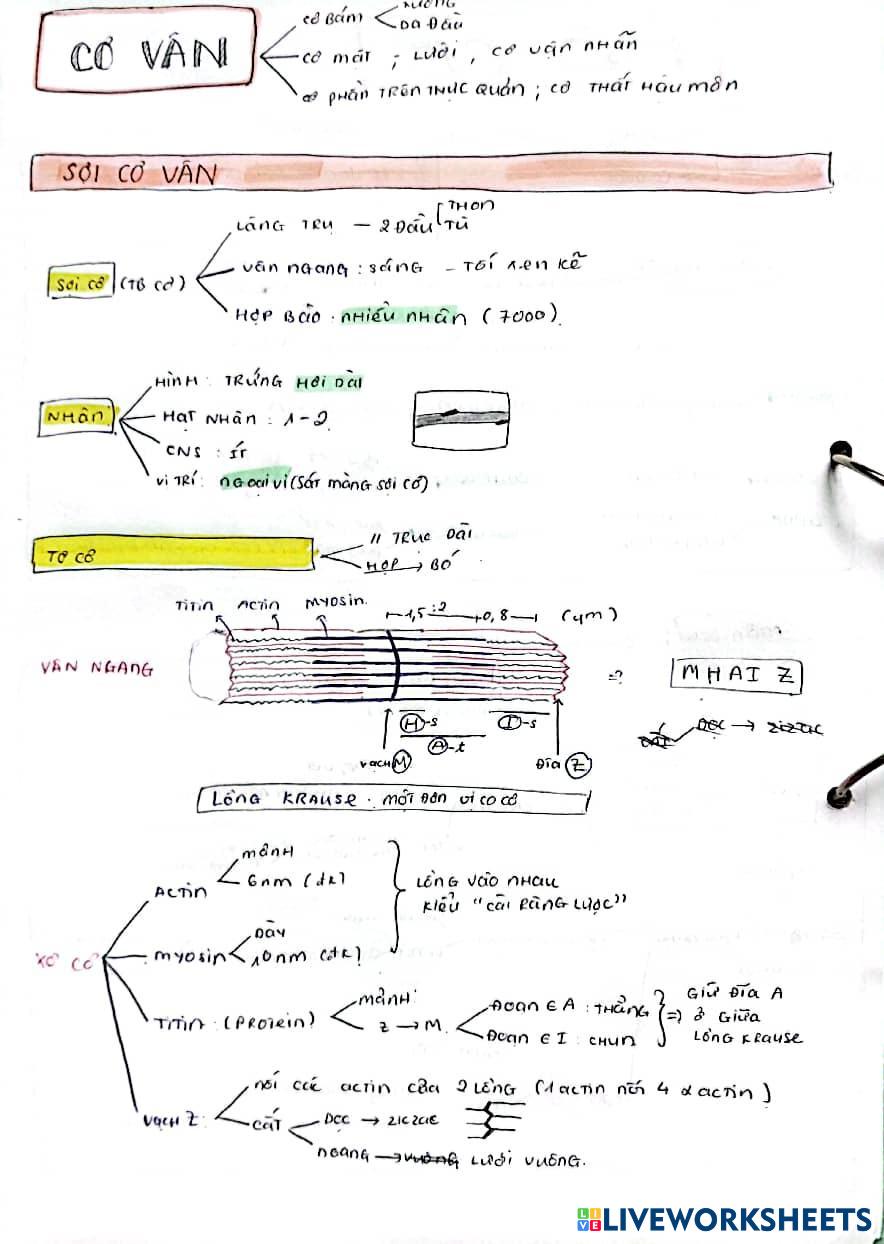 XƯƠNG
CƠ BÁM
DA ĐẦU
CƠ VÂN
CƠ MẶT ; LƯỠI , CƠ VẬN NHÃN
CƠ PHẦN TRÊN THỰC QUẢN ; CƠ THẮT HẬU MÔN
SỢI CƠ VÂN
LĂNG TRỤ - 2 ĐẦU
THON
TÙ
SỢI CƠ (TB CƠ)
VÂN NGANG : SÁNG - TỐI XEN KẼ
HỢP BÀO . NHIỀU NHÂN (7000).
NHÂN
HÌNH : TRỨNG HƠI DÀI
HẠT NHÂN : 1-2.
CNS : ÍT
VỊ TRÍ : NGOẠI VI (SÁT MÀNG SỢI CƠ) .
TƠ CƠ
// TRỤC DÀI
HỢP → BÓ
TITIN ACTIN MYOSIN. 1,5 : 2 0,8 (μm)
VÂN NGANG
=? MHAI Z
H-S I-S
A-t
VẠCH M ĐĨA Z
DỌC →
LỒNG KRAUSE . MỖI ĐƠN VỊ CO CƠ
XƠ CƠ
ACTIN
MẢNH
6nm (đk)
MYOSIN
DÀY
10nm (đk)
LỒNG VÀO NHAU
KIỂU "CÀI RĂNG LƯỢC"
TITIN : (PROTEIN)
MẢNH :
Z → M.
ĐOẠN ∈ A : THẲNG
ĐOẠN ∈ I : CHUN
=) GIỮ ĐĨA A
Ở GIỮA
LỒNG KRAUSE
VẠCH Z :
NỐI CÁC ACTIN CỦA 2 LỒNG (1 ACTIN NỐI 4 α ACTIN)
CẮT
DỌC → ZIC ZAC
NGANG → LƯỚI VUÔNG.
LIVEWORKSHEETS